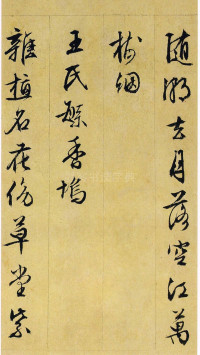 随潮去月落空江萬
樹烟
王氏繁香塢
雜植名花傍草堂紫